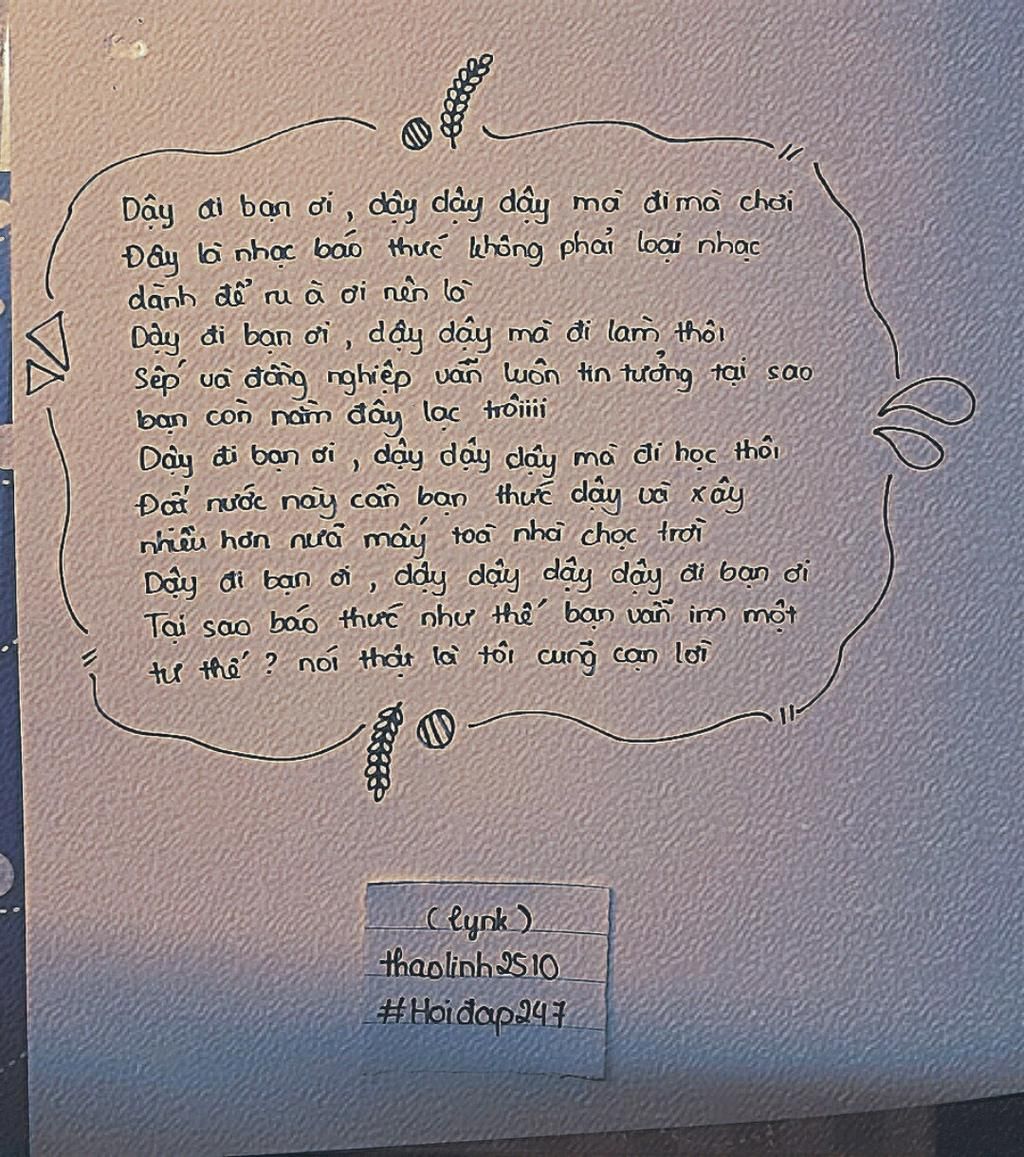 Dậy đi bạn ơi, dậy dậy dậy mà đi mà chơi
Đây là nhạc báo thức không phải loại nhạc
dành để ru à ơi nên là
Dậy đi bạn ơi, dậy dậy mà đi làm thôi
Sếp và đồng nghiệp vẫn luôn tin tưởng tại sao
bạn còn nằm đây lạc trôiiii
Dậy đi bạn ơi, dậy dậy dậy mà đi học thôi
Đất nước này cần bạn thức dậy và xây
nhiều hơn nữa mấy toà nhà chọc trời
Dậy đi bạn ơi, dậy dậy dậy dậy đi bạn ơi
Tại sao báo thức như thế bạn vẫn im một
tư thế? nói thật là tôi cũng cạn lời
(lynk)
thaolinh2510
#Hoiđap247